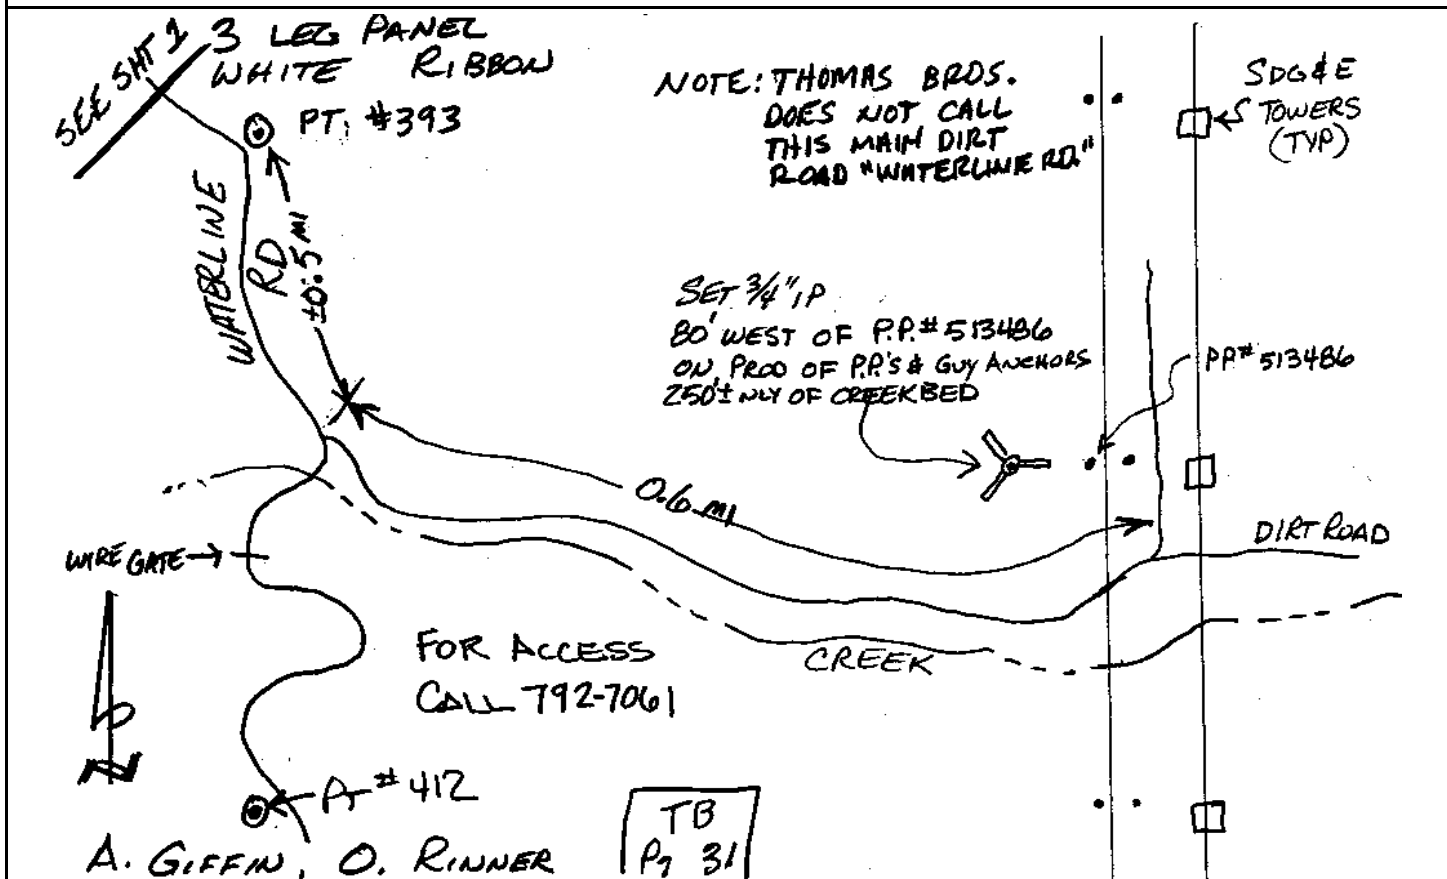 SEE SHT 1
3 LEG PANEL
WHITE RIBBON
PT. #393
NOTE: THOMAS BROS.
DOES NOT CALL
THIS MAIN DIRT
ROAD "WATERLINE RD."
SDG&E
TOWERS
(TYP)
WATERLINE
RD
±0.5 MI
SET 3/4" IP
80' WEST OF P.P.# 513486
ON PROD OF P.P.'S & GUY ANCHORS
250'± NLY OF CREEKBED
P.P.# 513486
0.6 MI
DIRT ROAD
WIRE GATE
FOR ACCESS
CALL 792-7061
CREEK
#412
A. GIFFIN, O. RINNER
TB
Pg 31